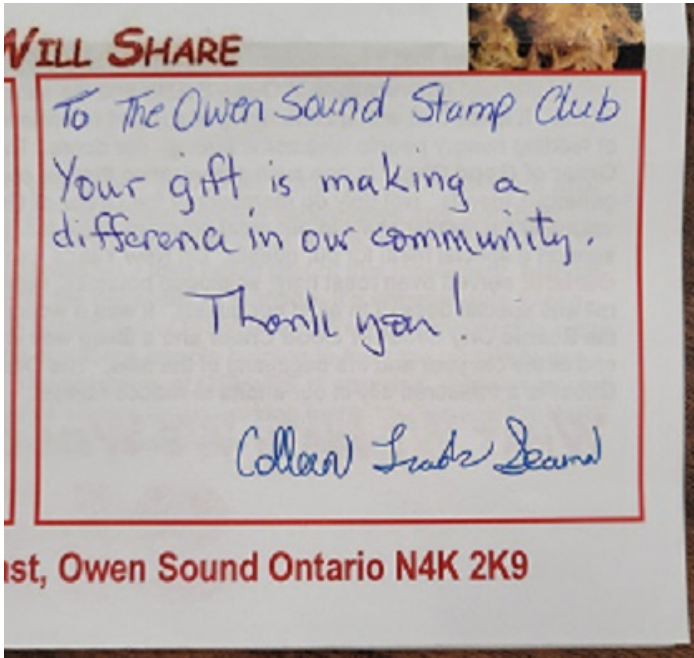 WILL SHARE
To The Owen Sound Stamp Club
Your gift is making a
difference in our community.
Thank you!
Colleen
ast, Owen Sound Ontario N4K 2K9